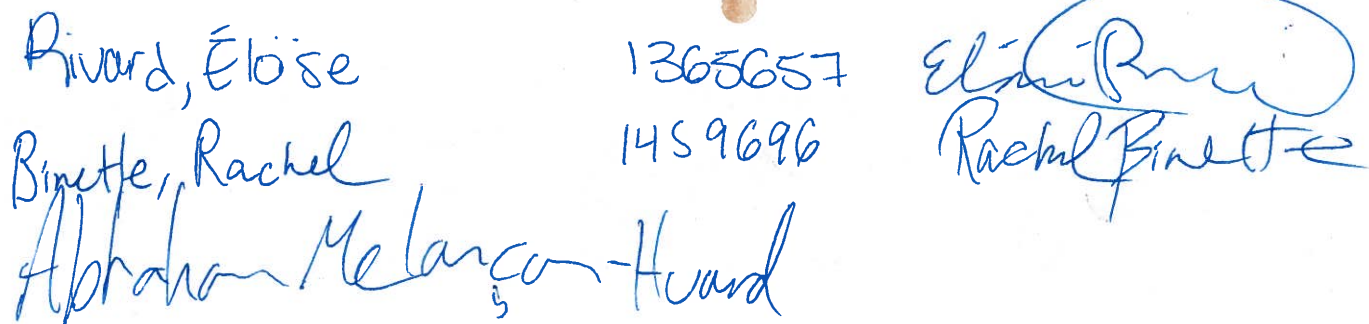 Rivard, Éloïse 1365657 Éloïse R
Binette, Rachel 1459696 Rachel Binette
Abraham Melançon-Huard